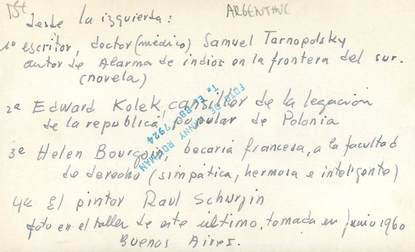 ARGENTINE
Desde la izquierda:
1º escritor, doctor (médico) Samuel Tarnopolsky
autor de Alarma de indios en la frontera del sur.
(novela)
2ª Edward Kolek, canciller de la legación
de la república popular de Polonia
3ª Helen Bourgoin, becaria francesa, a la facultad
de derecho (simpática, hermosa e inteligente)
4ª El pintor Raul Schurjin
foto en el taller de este último, tomada en junio 1960
Buenos Aires.
FOTO DE
ROMAN
7924